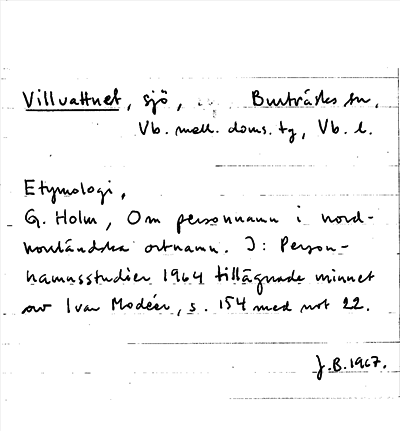 Villvattnet, sjö, Burträsks sn,
Vb. mell. doms. tg, Vb. l.
Etymologi,
G. Holm, Om personnamn i nord-
svenländska ortnamn. I: Person-
namnsstudier 1964 tillägnade minnet
av Ivar Modéer, s. 154 med not 22.
J.B. 1967.